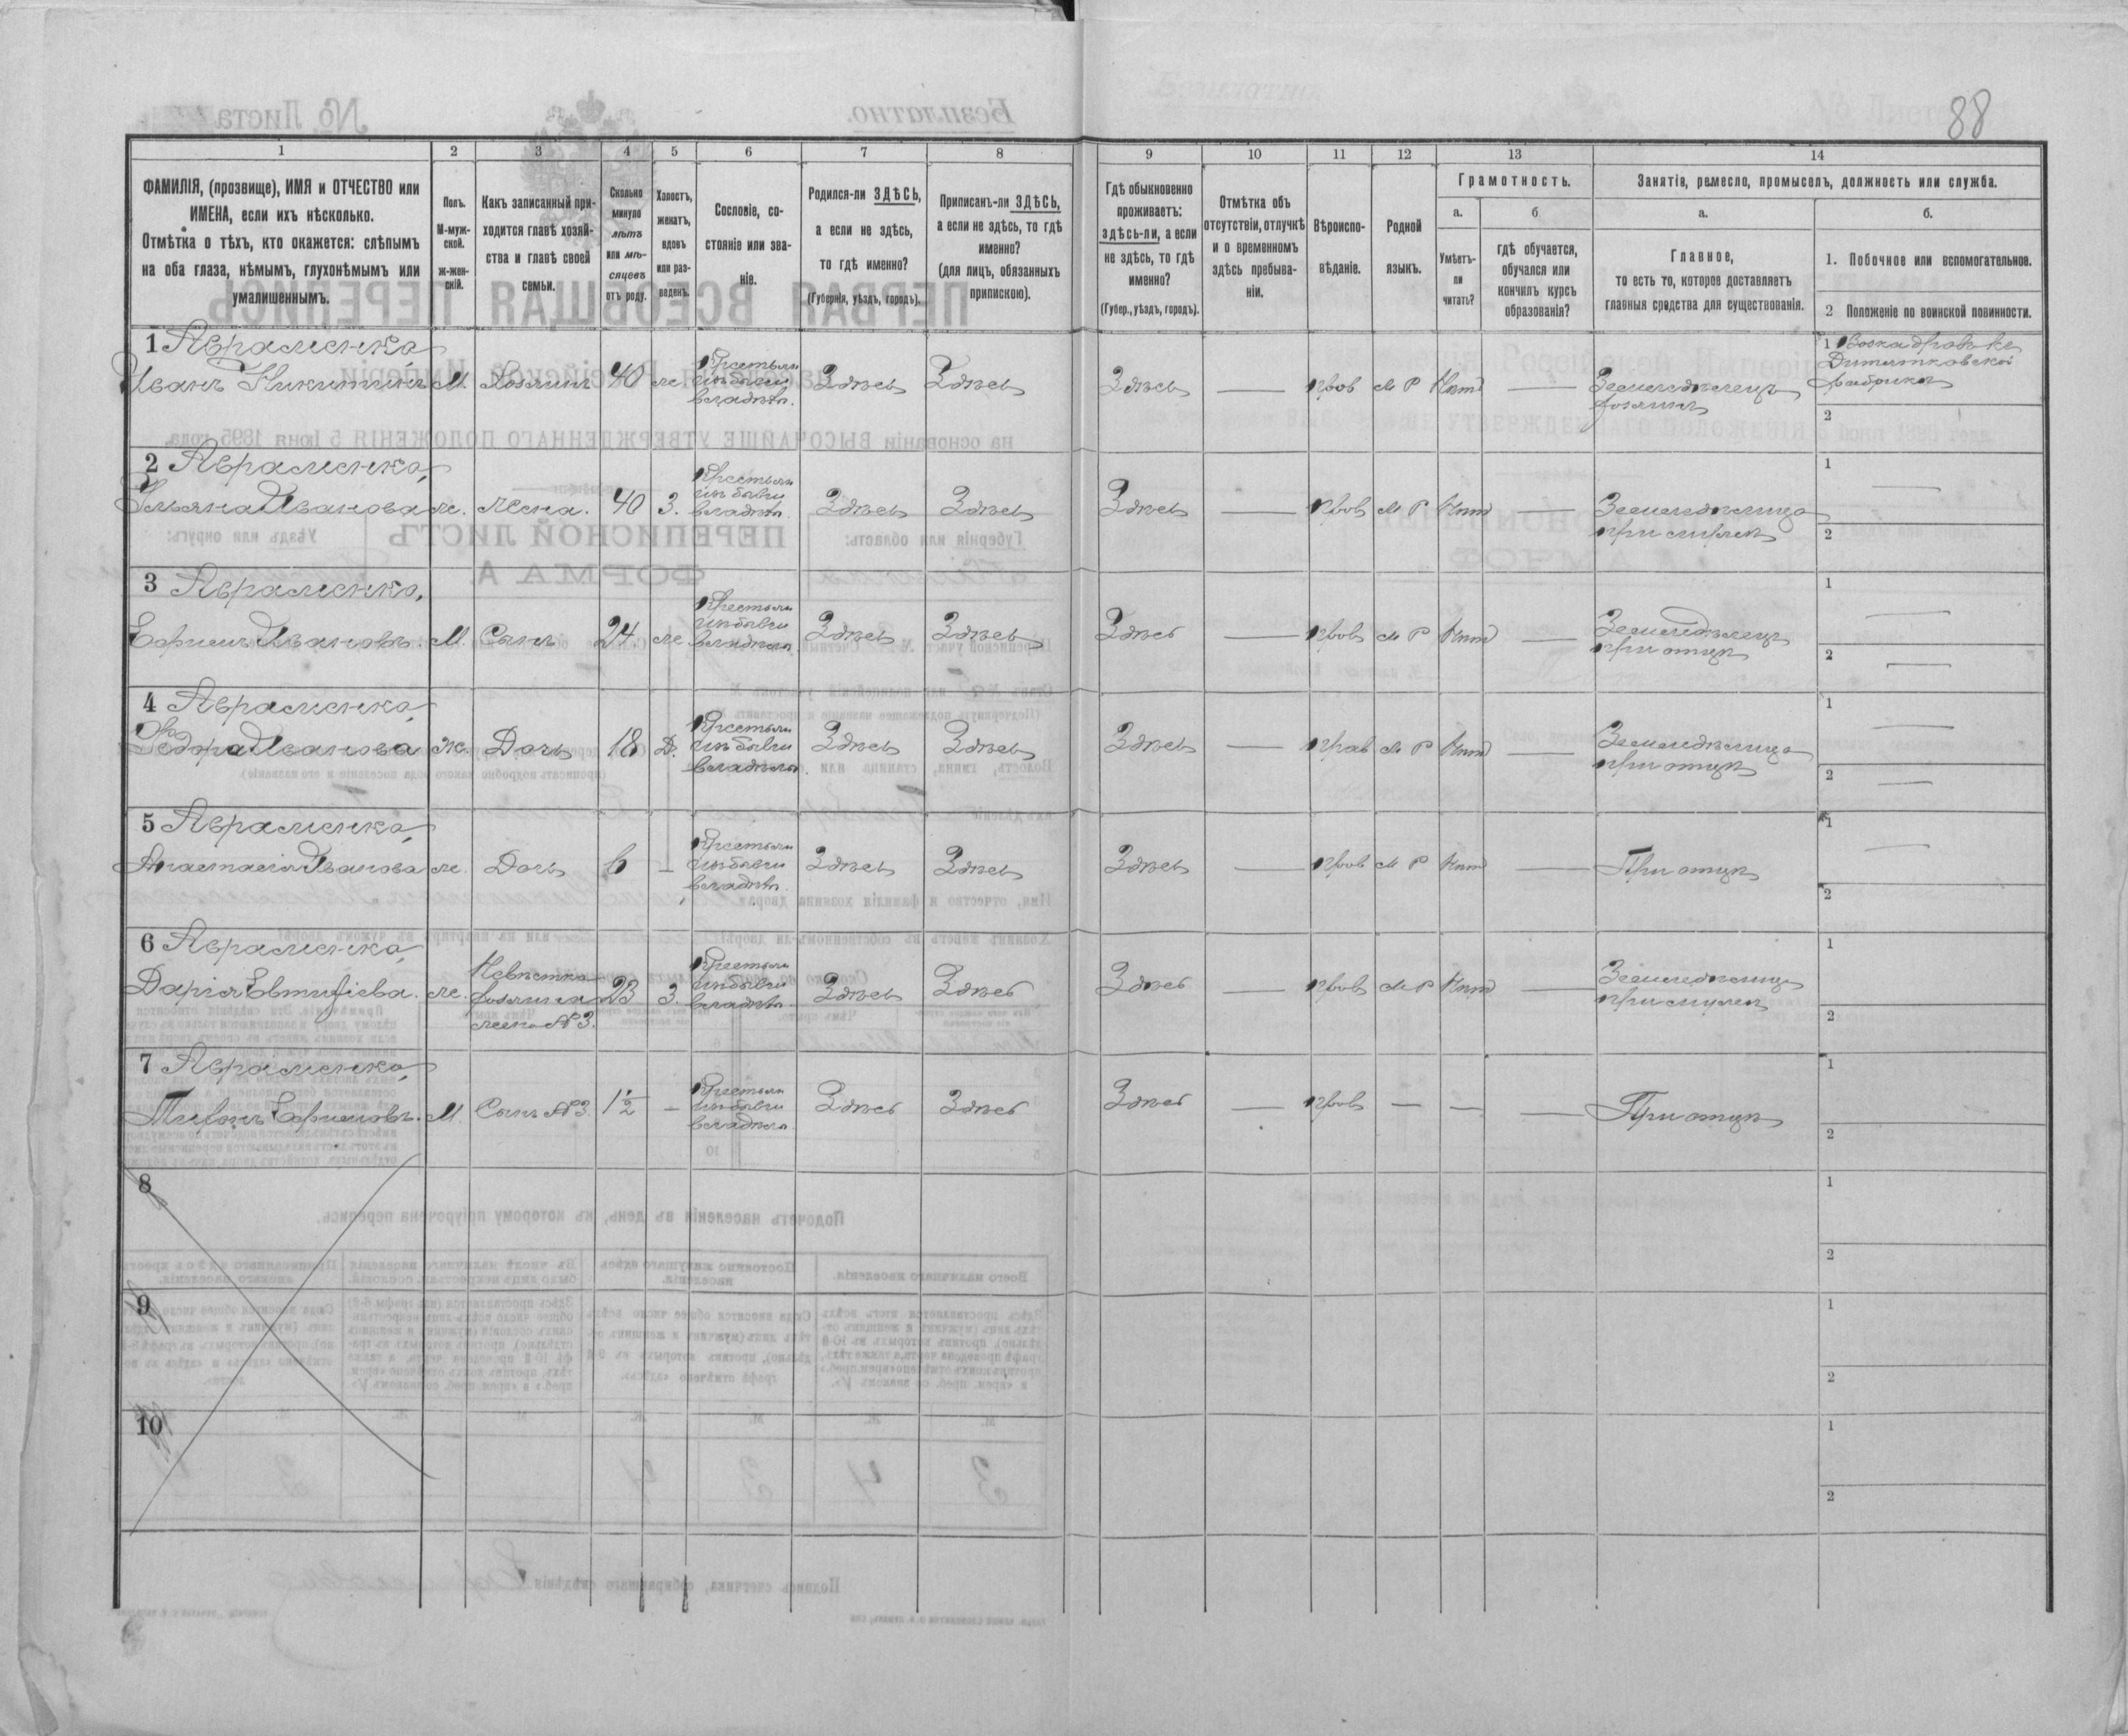 88
1 2 3 4 5 6 7 8 9 10 11 12 13 14
ФАМИЛІЯ, (прозвище), ИМЯ и ОТЧЕСТВО или
ИМЕНА, если ихъ нѣсколько.
Отмѣтка о тѣхъ, кто окажется: слѣпымъ
на оба глаза, нѣмымъ, глухонѣмымъ или
умалишеннымъ.
Полъ.
М-муж-
ской.
ж-жен-
скій.
Какъ записанный при-
ходится главѣ хозяй-
ства и главѣ своей
семьи.
Сколько
минуло
лѣтъ
или мѣ-
сяцевъ
отъ роду.
Холостъ,
женатъ,
вдовъ
или раз-
веденъ.
Сословіе, со-
стояніе или зва-
ніе.
Родился-ли ЗДѢСЬ,
а если не здѣсь,
то гдѣ именно?
(Губернія, уѣздъ, городъ).
Приписанъ-ли ЗДѢСЬ,
а если не здѣсь, то гдѣ
именно?
(для лицъ, обязанныхъ
припискою).
Гдѣ обыкновенно
проживаетъ:
здѣсь-ли, а если
не здѣсь, то гдѣ
именно?
(Губер., уѣздъ, городъ).
Отмѣтка объ
отсутствіи, отлучкѣ
и о временномъ
здѣсь пребыва-
ніи.
Вѣроиспо-
вѣданіе.
Родной
языкъ.
Грамотность.
а.
Умѣетъ-
ли
читать?
б.
гдѣ обучается,
обучался или
кончилъ курсъ
образованія?
Занятіе, ремесло, промыселъ, должность или служба.
а.
Главное,
то есть то, которое доставляетъ
главныя средства для существованія.
б.
1. Побочное или вспомогательное.
2 Положеніе по воинской повинности.
1 Авраменко,
Иванъ Никитинъ М. Хозяинъ 40 ж. Крестьян
инъ бывш
владѣл. Здѣсь Здѣсь Здѣсь — прав м Р Нѣт —
Земледѣлецъ
хозяинъ
1 Возка дровъ къ
Дитятковской
фабрикѣ
2
2 Авраменко,
Ульяна Иванова ж. Жена. 40 З. Крестьян
инъ бывш
владѣл. Здѣсь Здѣсь Здѣсь — прав м Р Нѣт —
Земледѣлица
при мужѣ
1 —
2
3 Авраменко,
Ефимъ Ивановъ. М. Сынъ 24 ж. Крестьян
инъ бывш
владѣл. Здѣсь Здѣсь Здѣсь — прав м Р Нѣт —
Земледѣлецъ
при отцѣ
1 —
2 —
4 Авраменко,
Федора Иванова ж. Дочь 18 Д. Крестьян
инъ бывш
владѣл. Здѣсь Здѣсь Здѣсь — прав м Р Нѣт —
Земледѣлица
при отцѣ
1 —
2 —
5 Авраменко,
Анастасія Иванова ж. Дочь 6 — Крестьян
инъ бывш
владѣл. Здѣсь Здѣсь Здѣсь — прав м Р Нѣт —
При отцѣ
1 —
2
6 Авраменко,
Дарія Евтифіева. ж. Невѣстка
хозяина
жена №3. 23 З. Крестьян
инъ бывш
владѣл. Здѣсь Здѣсь Здѣсь — прав м Р Нѣт —
Земледѣлица
при мужѣ
1
2
7 Авраменко,
Ефимовъ. М. Сынъ №3. 1½ — Крестьян
инъ бывш
владѣл. Здѣсь Здѣсь Здѣсь — прав — — —
При отцѣ
1
2
8
1
2
9
1
2
10
1
2